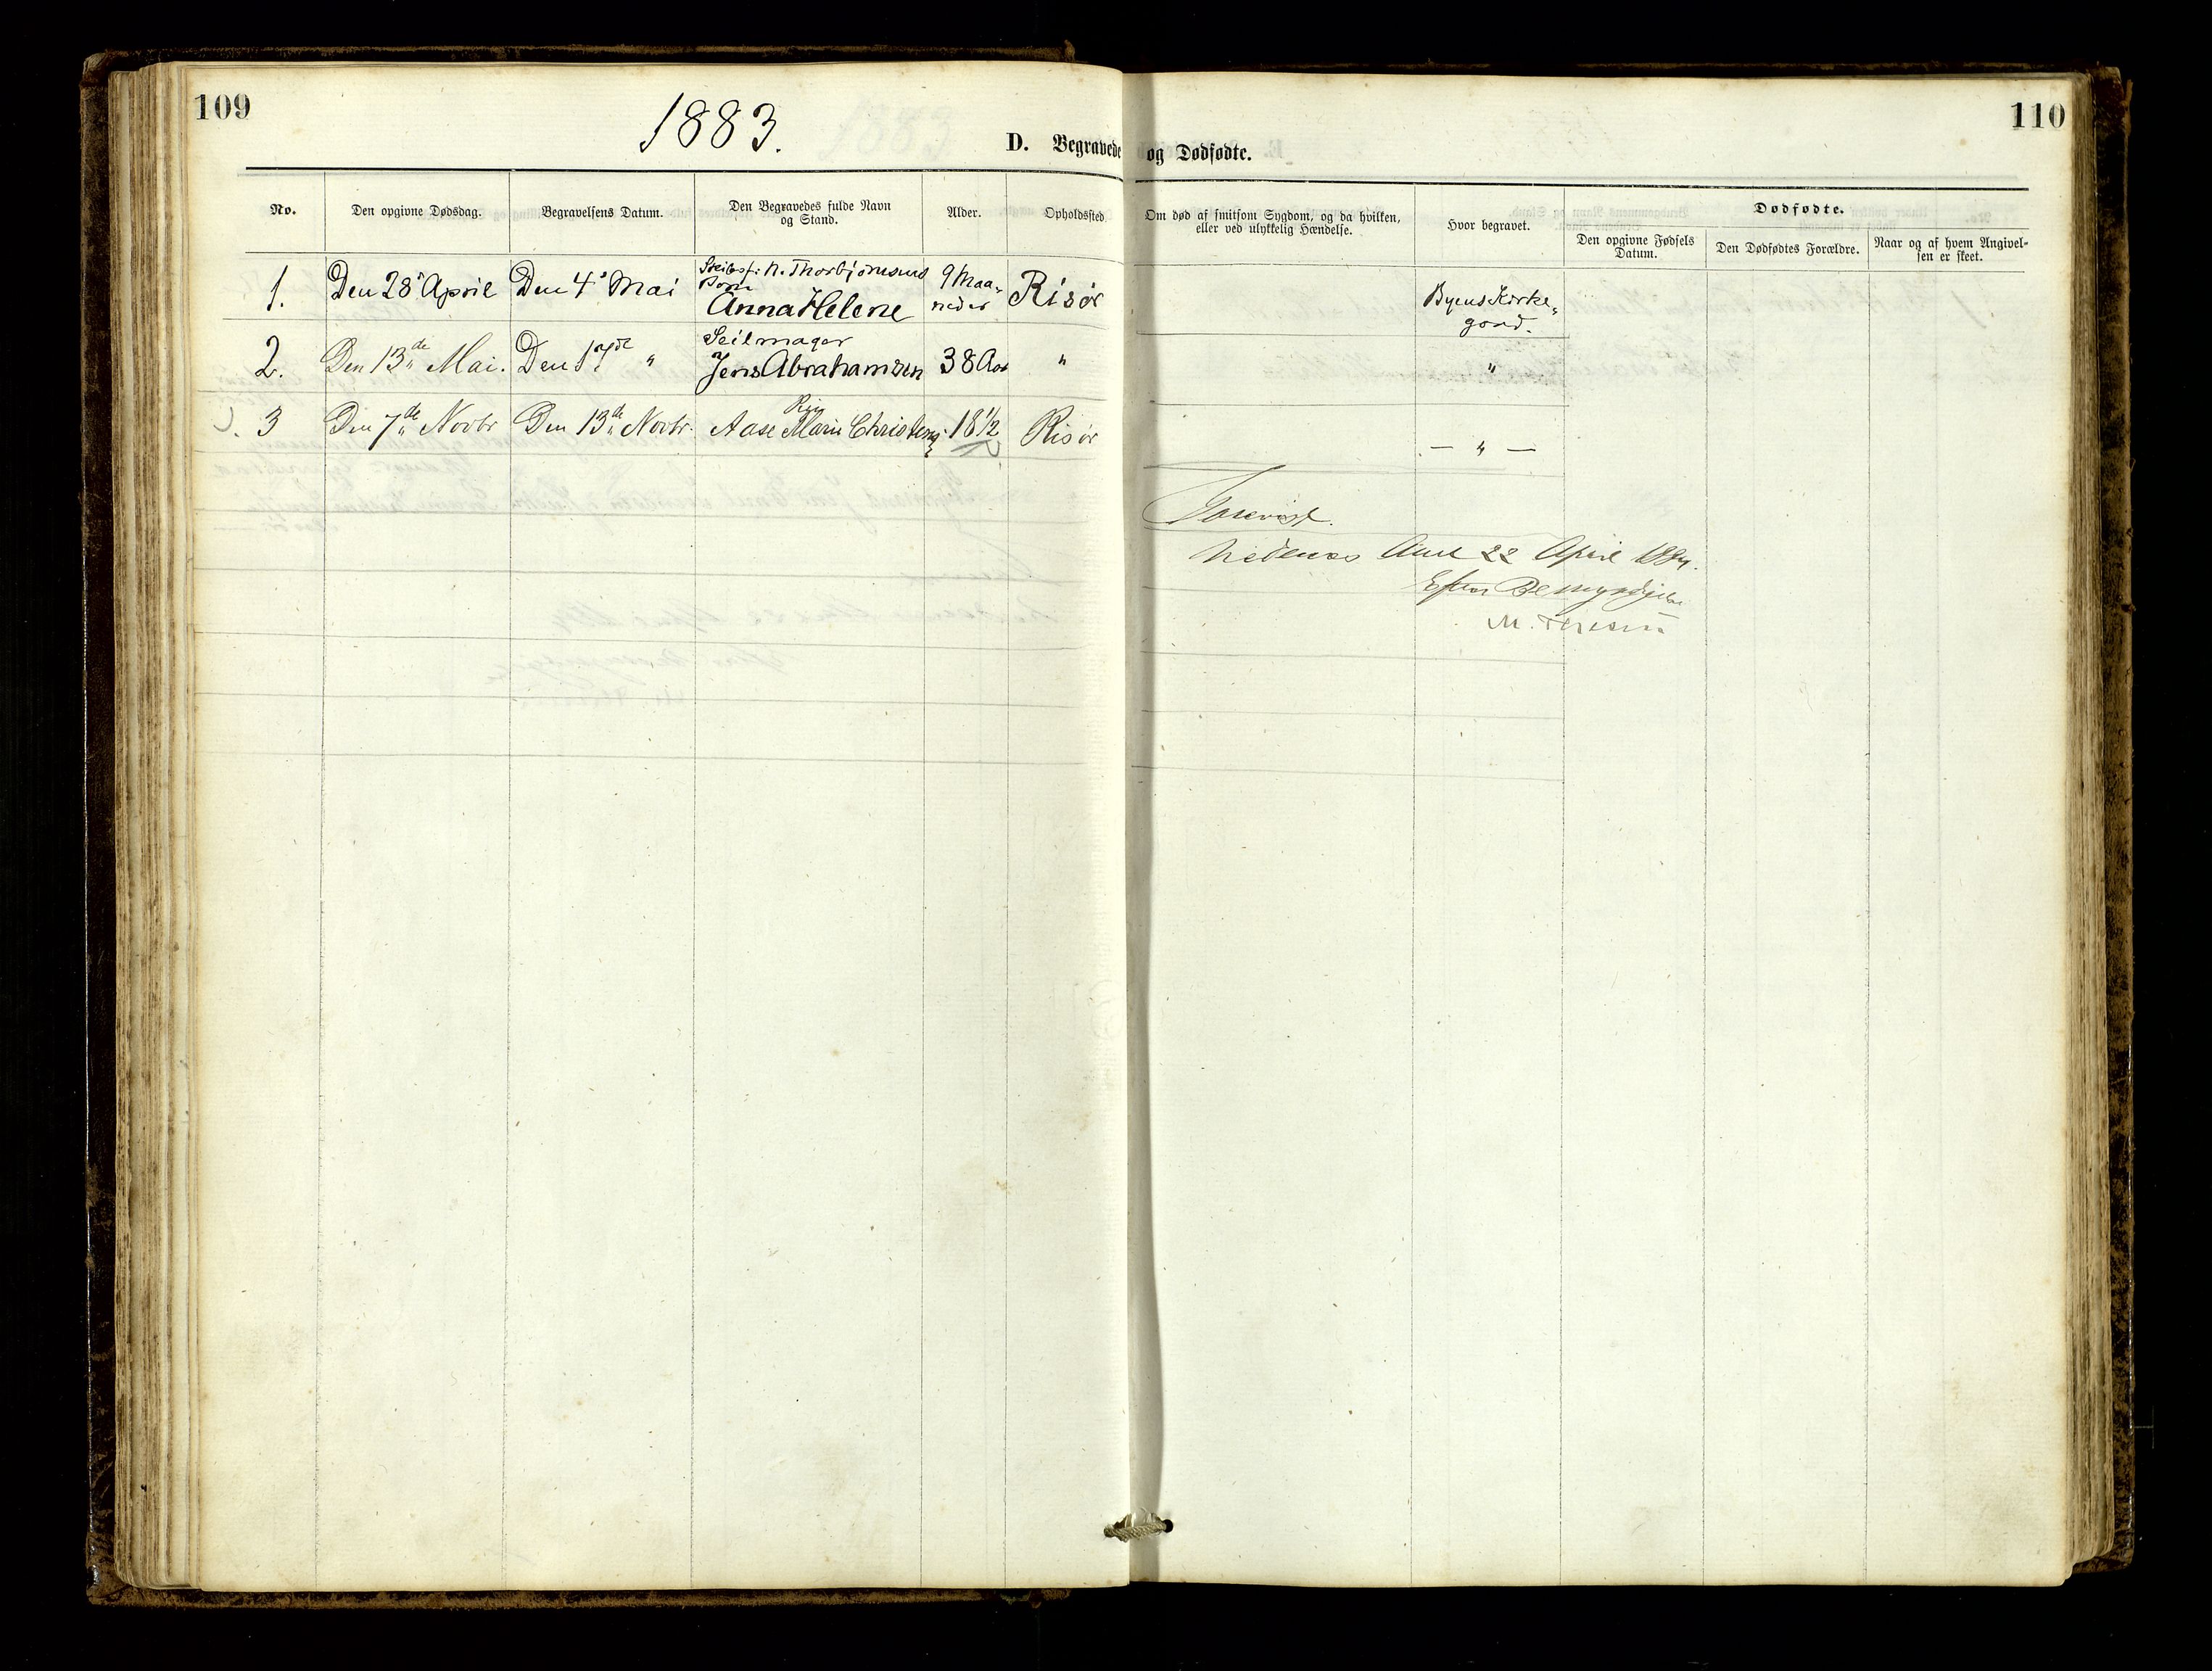 109
1883.
D. Begravede og Dødfødte.
110
No.
Den opgivne Dødsdag.
Begravelsens Datum.
Den Begravedes fulde Navn
og Stand.
Alder.
Opholdssted
Om død af smitsom Sygdom, og da hvilken,
eller ved ulykkelig Hændelse.
Hvor begravet.
Dødfødte.
Den opgivne Fødsels
Datum.
Den Dødfødtes Forældre.
Naar og af hvem Angivel-
sen er skeet.
N. Thorbjørnsens
Barn
1. Den 28 April Den 4 Mai Anna Helene 9 Maa-
neder Risör Byens Kirke-
gaard.
Seilmager
2. Den 13de Mai. Den 17de " Jens Abrahamsen 38 Aar " "
3 Den 7de Novbr Den 13de Novbr. Aase Marie Christens. 18 1/2 Risör — " —
Forevist.
Nedenæs Amt 22 April 1884.
Efter Bemyndigelse
M.